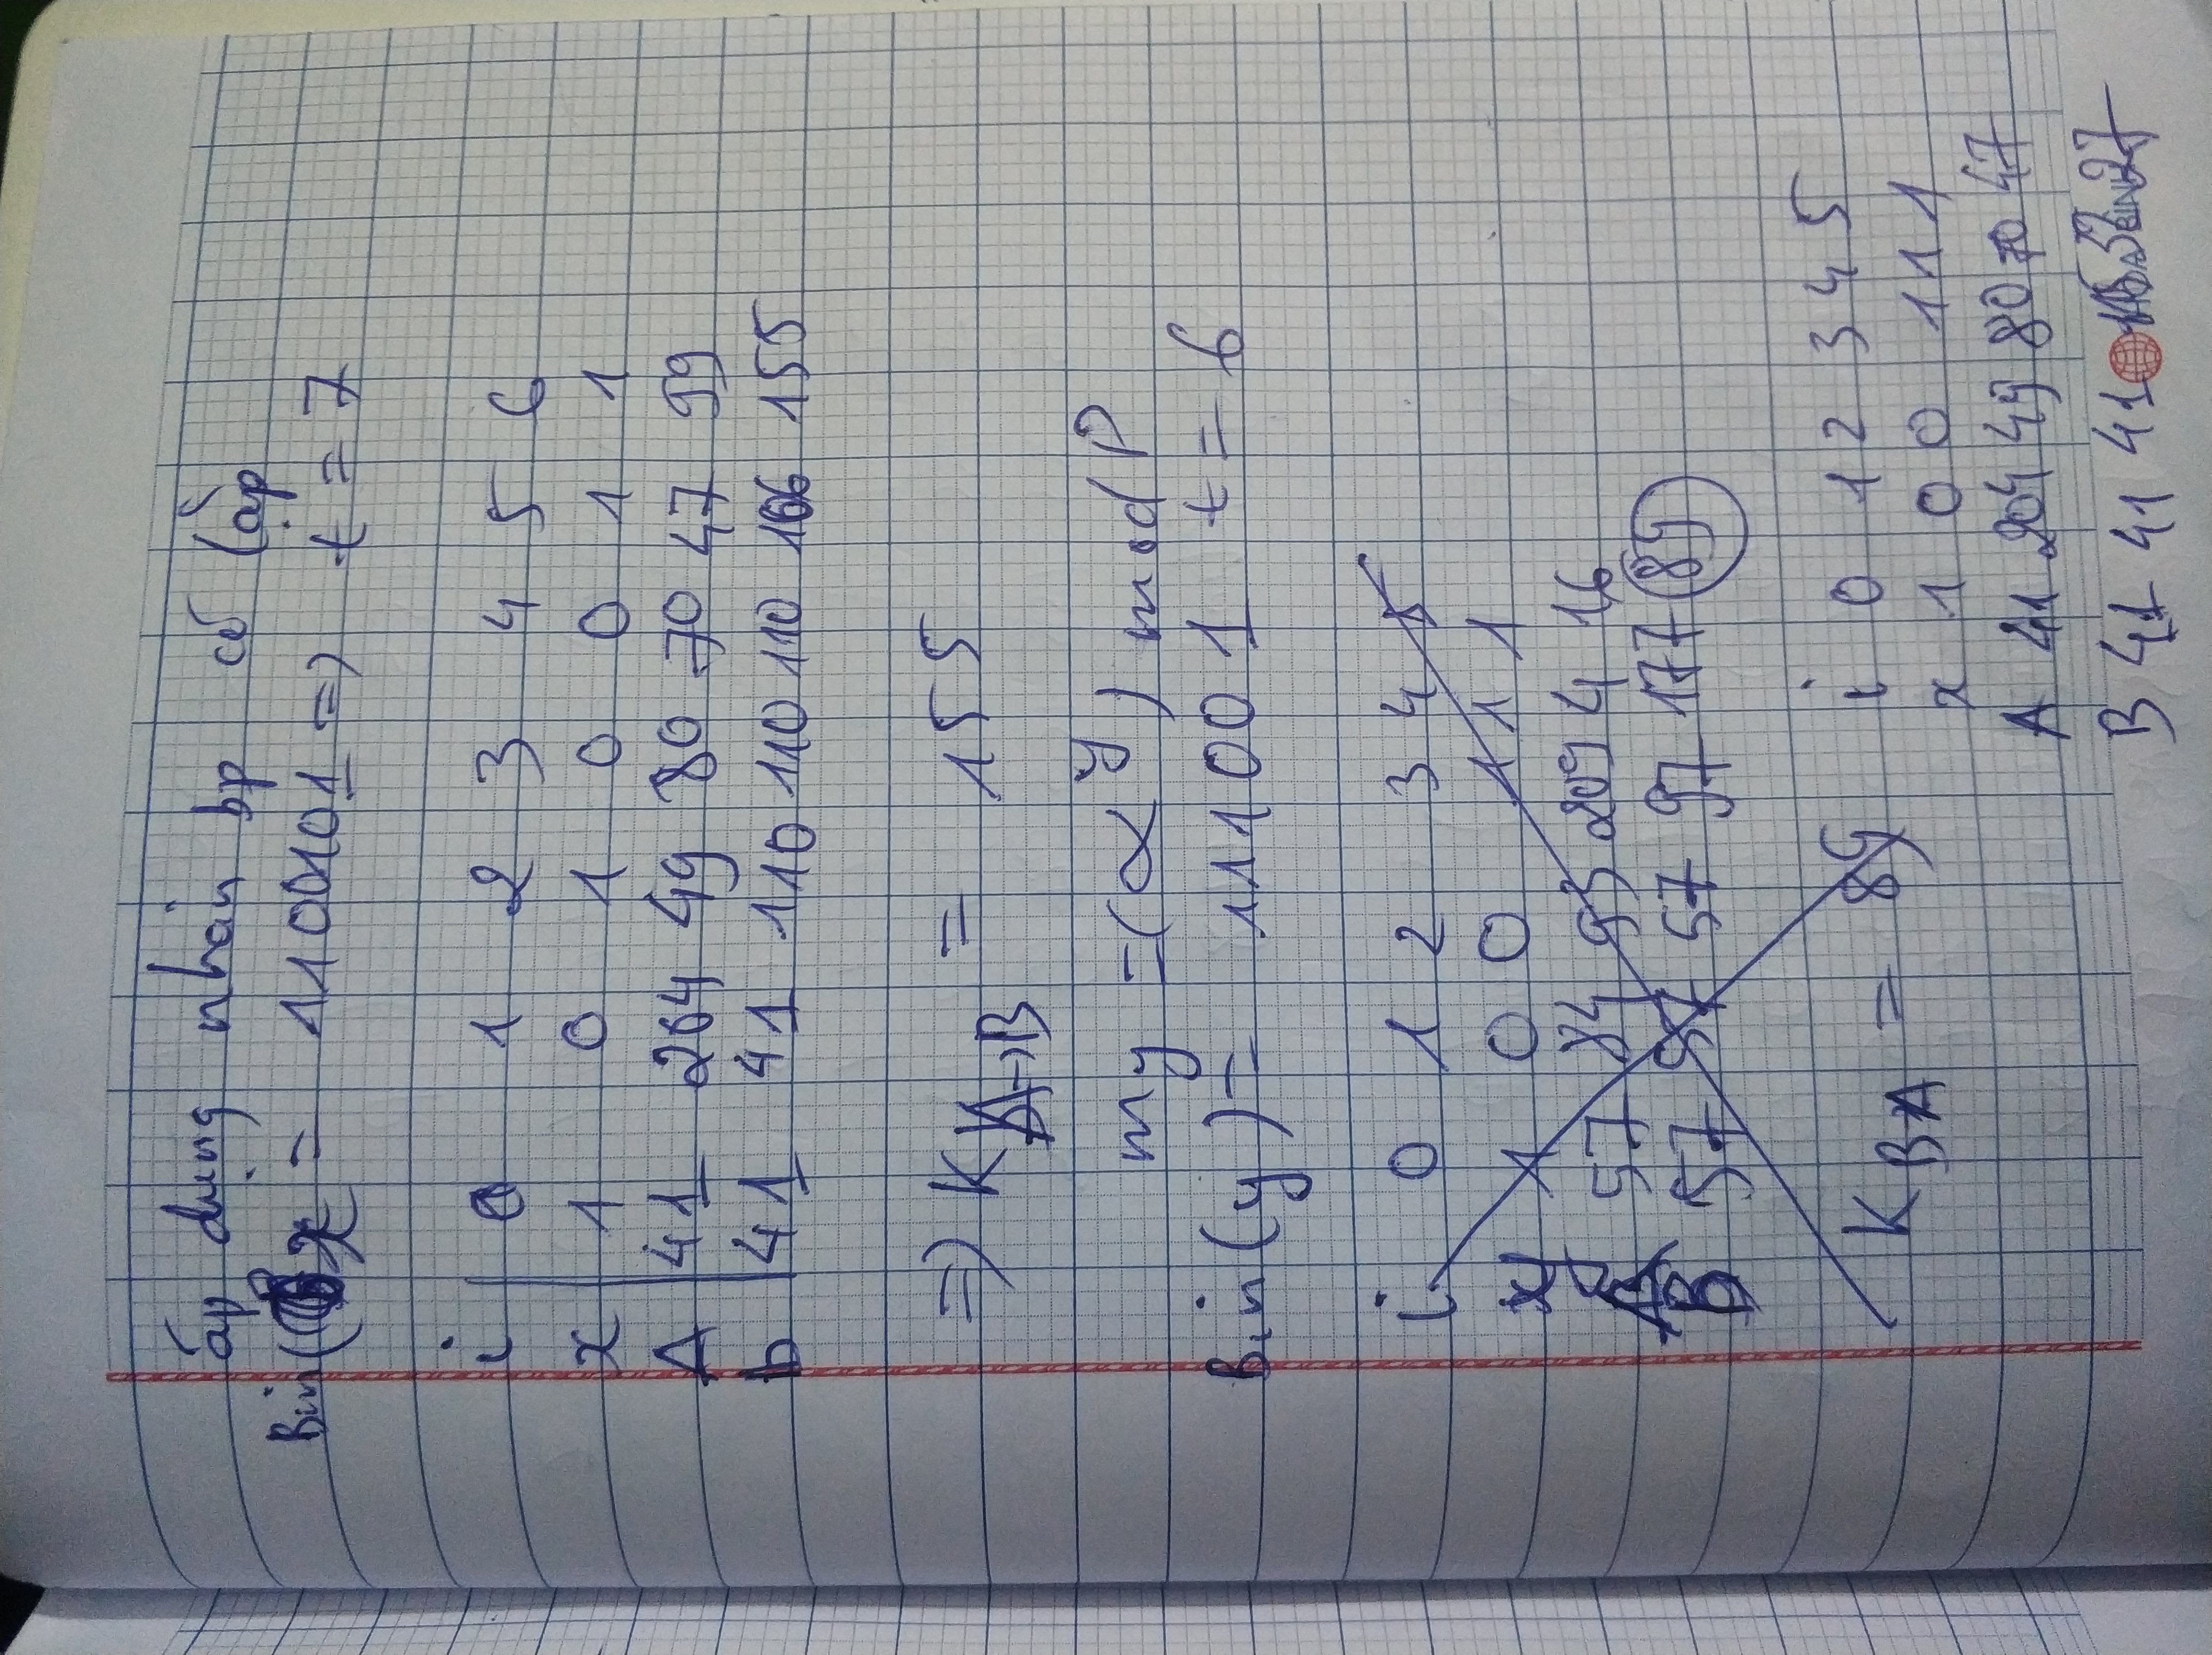 áp dụng nhân bp có lặp
Bin(x = 1100101 => t = 7
i 0 1 2 3 4 5 6
x 1 0 1 0 0 1 1
A 41 204 49 80 70 47 99
b 41 41 110 110 110 106 155
=> K A→B = 155
my = (α^y) mod P
Bin(y) = 111001 t = 6
i 0 1 2 3 4 5
y 1 0 0 1 1 1
A 57 84 93 209 4 16
B 57 57 57 97 177 89
K BA = 89
i 0 1 2 3 4 5
x 1 0 0 1 1 1
A 41 204 49 80 70 47
B 41 41 41 27